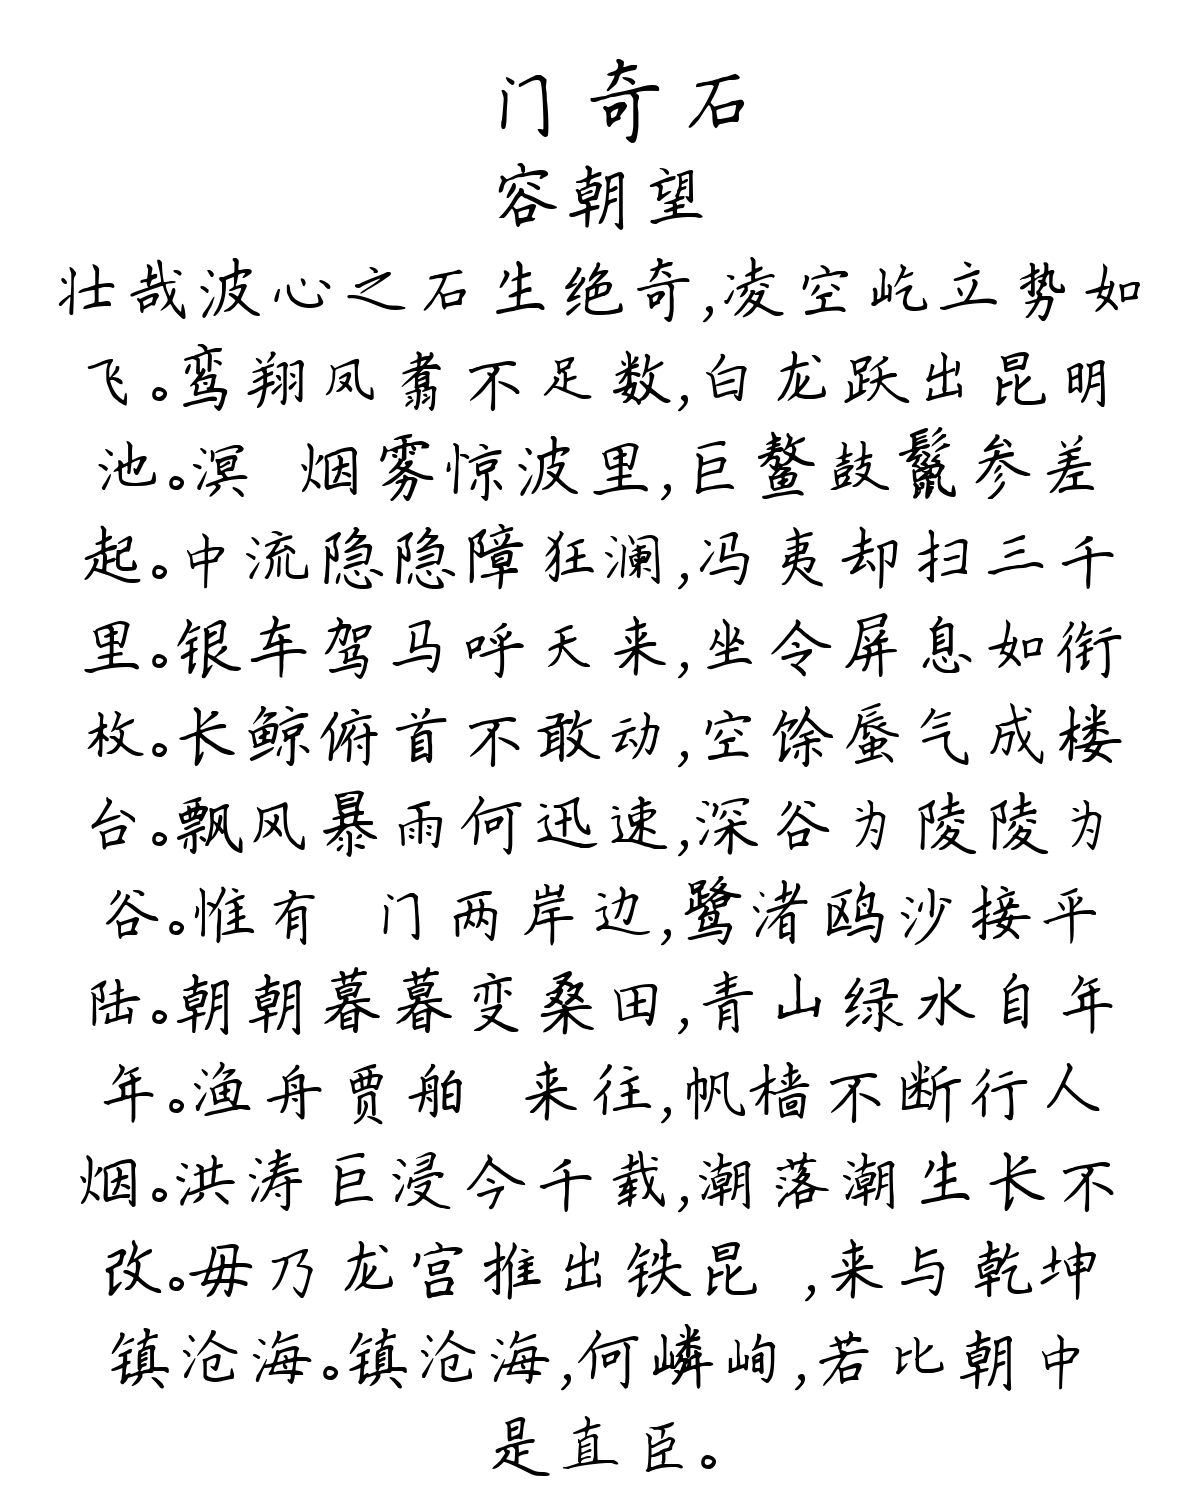 门奇石
容朝望
壮哉波心之石生绝奇,凌空屹立势如
飞。鸾翔凤翥不足数,白龙跃出昆明
池。溟 烟雾惊波里,巨鳌鼓鬣参差
起。中流隐隐障狂澜,冯夷却扫三千
里。银车驾马呼天来,坐令屏息如衔
枚。长鲸俯首不敢动,空馀蜃气成楼
台。飘风暴雨何迅速,深谷为陵陵为
谷。惟有 门两岸边,鹭渚鸥沙接平
陆。朝朝暮暮变桑田,青山绿水自年
年。渔舟贾舶 来往,帆樯不断行人
烟。洪涛巨浸今千载,潮落潮生长不
改。毋乃龙宫推出铁昆 ,来与乾坤
镇沧海。镇沧海,何嶙峋,若比朝中
是直臣。